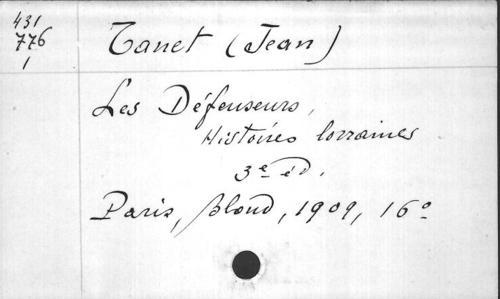 431
776
1
Tanet (Jean)
Les Défenseurs,
Histoires lorraines
3e éd.
Paris, Bloud, 1909, 16°